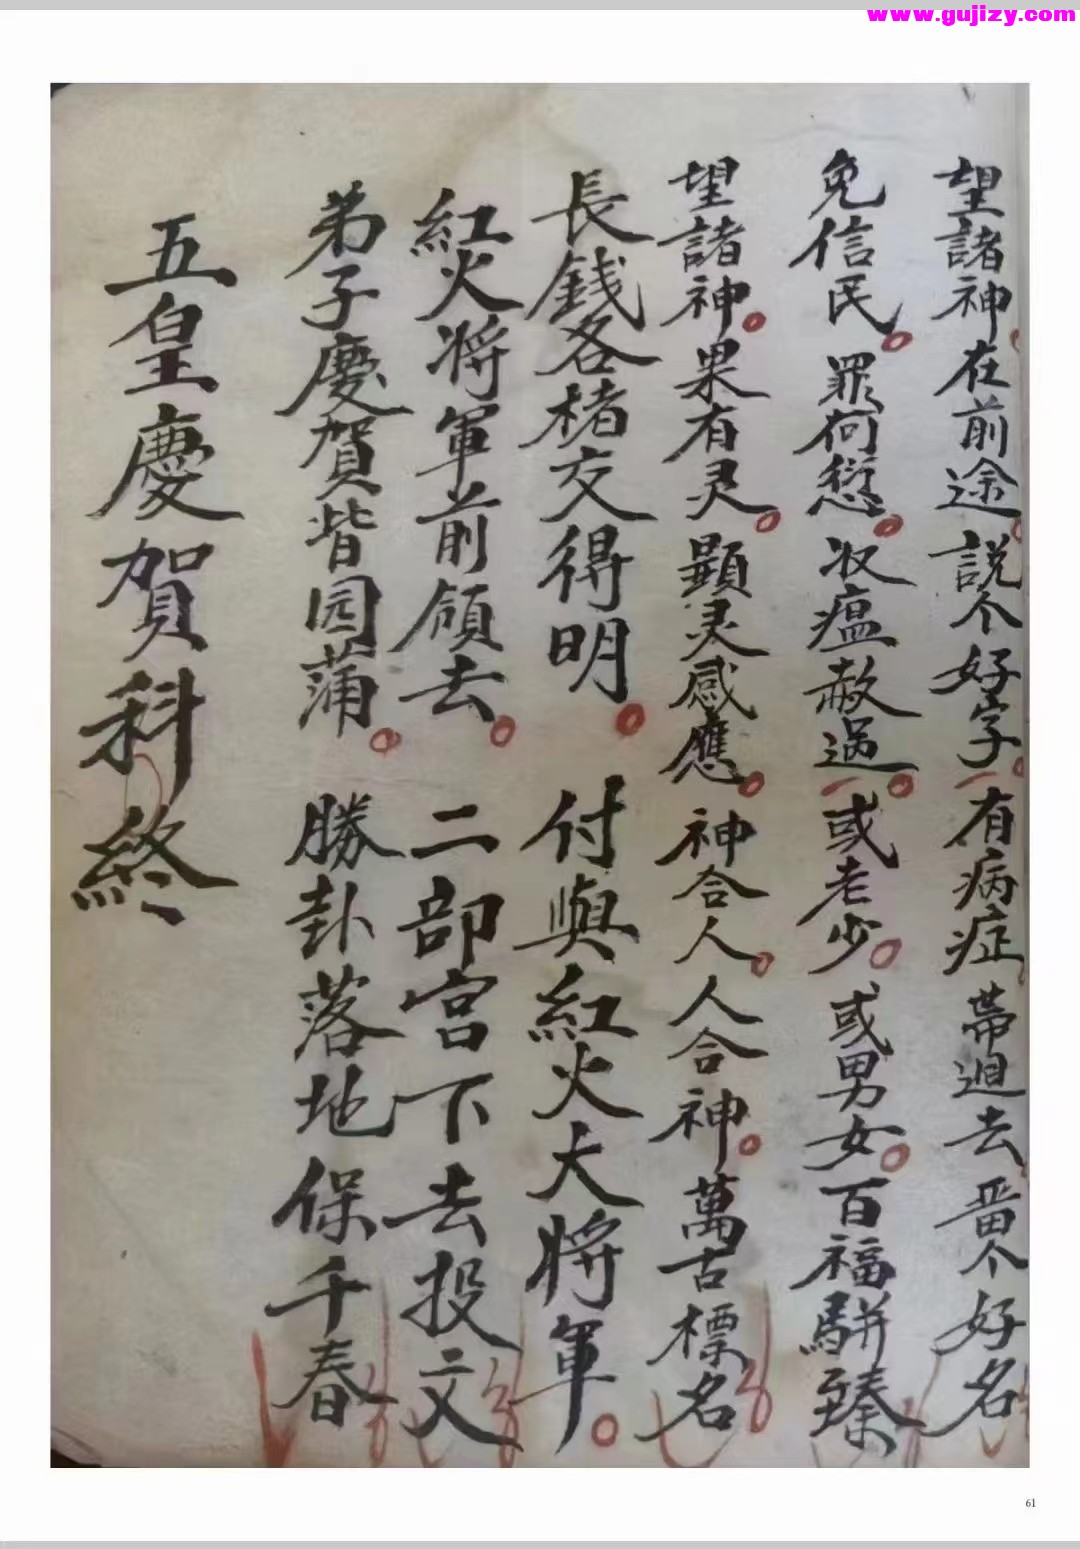 www.gujizy.com
望諸神在前途說个好字有病症帶迴去畱个好名
免信民罪何愆收瘟赦過或老少或男女百福駢臻
望諸神果有灵顯灵感應神合人人合神萬古標名
長錢各楮交得明付與紅火大將軍
紅火將軍前領去二部宫下去投文
弟子慶賀皆园蒲勝卦落地保千春
五皇慶賀科終
61